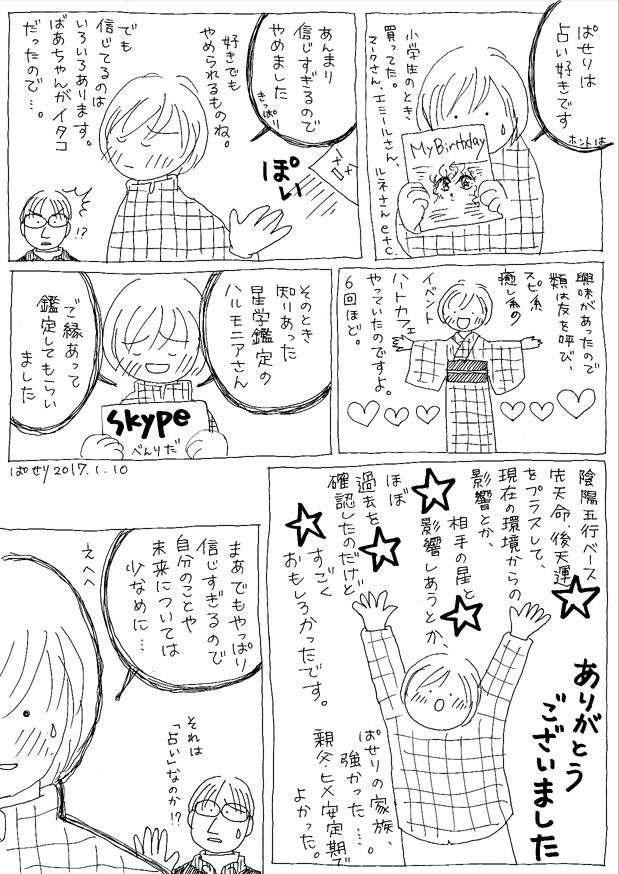 ぱせりは
占い好きです
ホントは
小学生のとき
買ってた。
マークさん、エミールさん、ルネさんetc.
My Birthday
あんまり
信じすぎるので
やめました
きっぱり
好きでも
やめられるものね。
ぽい
でも
信じてるのは
いろいろあります。
ばあちゃんがイタコ
だったので…。
!?
興味があったので
類は友を呼び、
スピ系
癒し系の
イベント
ハートカフェ
やっていたのですよ。
6回ほど。
そのとき
知りあった
星学鑑定の
ハルモニアさん
ご縁あって
鑑定してもらい
ました
skype
べんりだ
ぱせり2017.1.10
陰陽五行ベース
先天命、後天運
をプラスして、
現在の環境からの
影響とか、
相手の星と
影響しあうとか、
ほぼ
過去を
確認したのだけど
すごく
おもしろかったです。
ありがとう
ございました
ぱせりの家族、
強かった…。
親父、ヒメ安定期で
よかった。
まあでもやっぱり
信じすぎるので
自分のことや
未来については
少なめに…
えへへ
それは
「占い」なのか!?